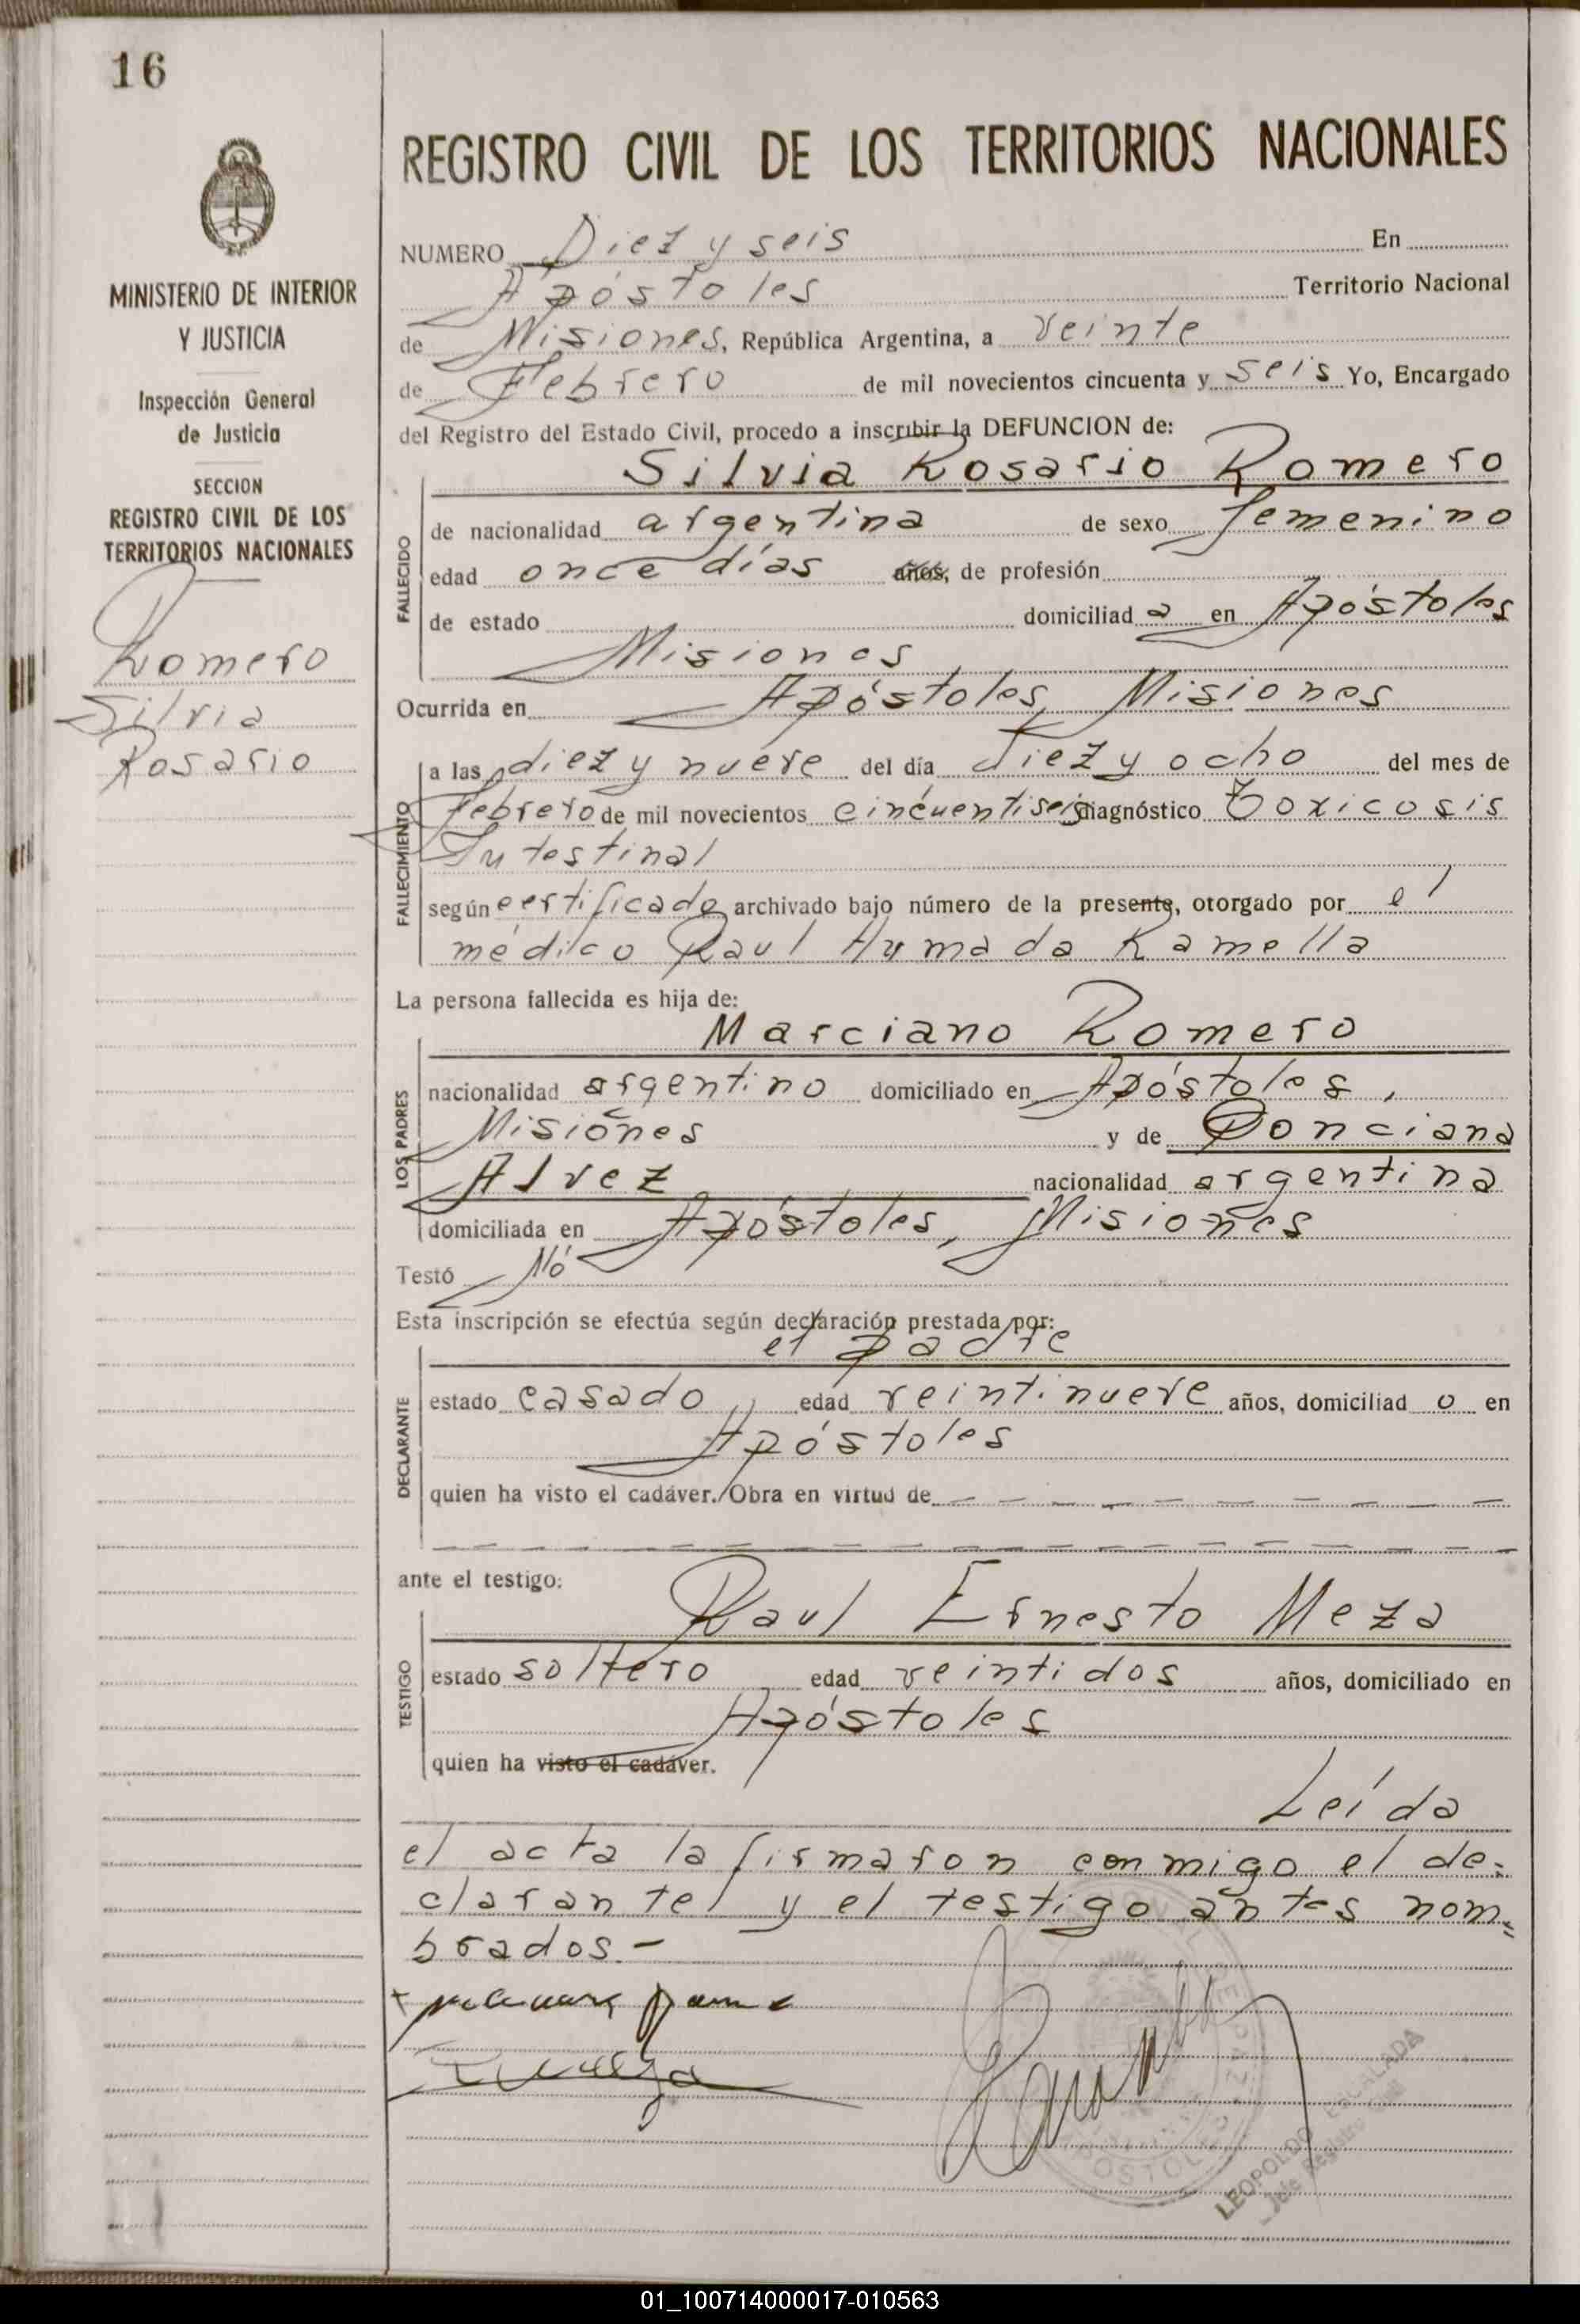 16
MINISTERIO DE INTERIOR
Y JUSTICIA
Inspección General
de Justicia
SECCION
REGISTRO CIVIL DE LOS
TERRITORIOS NACIONALES
Romero
Silvia
Rosario
REGISTRO CIVIL DE LOS TERRITORIOS NACIONALES
NUMERO Diez y seis En
Apóstoles Territorio Nacional
de Misiones, República Argentina, a veinte
de Febrero de mil novecientos cincuenta y seis Yo, Encargado
del Registro del Estado Civil, procedo a inscribir la DEFUNCION de:
Silvia Rosario Romero
FALLECIDO
de nacionalidad argentina de sexo femenino
edad once días años, de profesión
de estado domiciliad a en Apóstoles
Misiones
Ocurrida en Apóstoles, Misiones
FALLECIMIENTO
a las diez y nueve del día diez y ocho del mes de
Febrero de mil novecientos cincuentiseis diagnóstico Toxicosis
Intestinal
según certificado archivado bajo número de la presente, otorgado por el
médico Raul Humada Ramella
La persona fallecida es hija de:
Marciano Romero
LOS PADRES
nacionalidad argentino domiciliado en Apóstoles,
Misiones y de Ponciana
Alvez nacionalidad argentina
domiciliada en Apóstoles, Misiones
Testó Nó
Esta inscripción se efectúa según declaración prestada por:
el padre
DECLARANTE
estado casado edad veintinueve años, domiciliad o en
Apóstoles
quien ha visto el cadáver. Obra en virtud de — — — — — — — — —
— — — — — — — — — — — — — — — — —
ante el testigo:
Raul Ernesto Meza
TESTIGO
estado soltero edad veintidos años, domiciliado en
Apóstoles
quien ha visto el cadáver.
Leída
el acta la firmaron conmigo el de=
clarante y el testigo antes nom=
brados.-
APOSTOLES
LEOPOLDO ESCALADA
Jefe Registro Civil
01_100714000017-010563